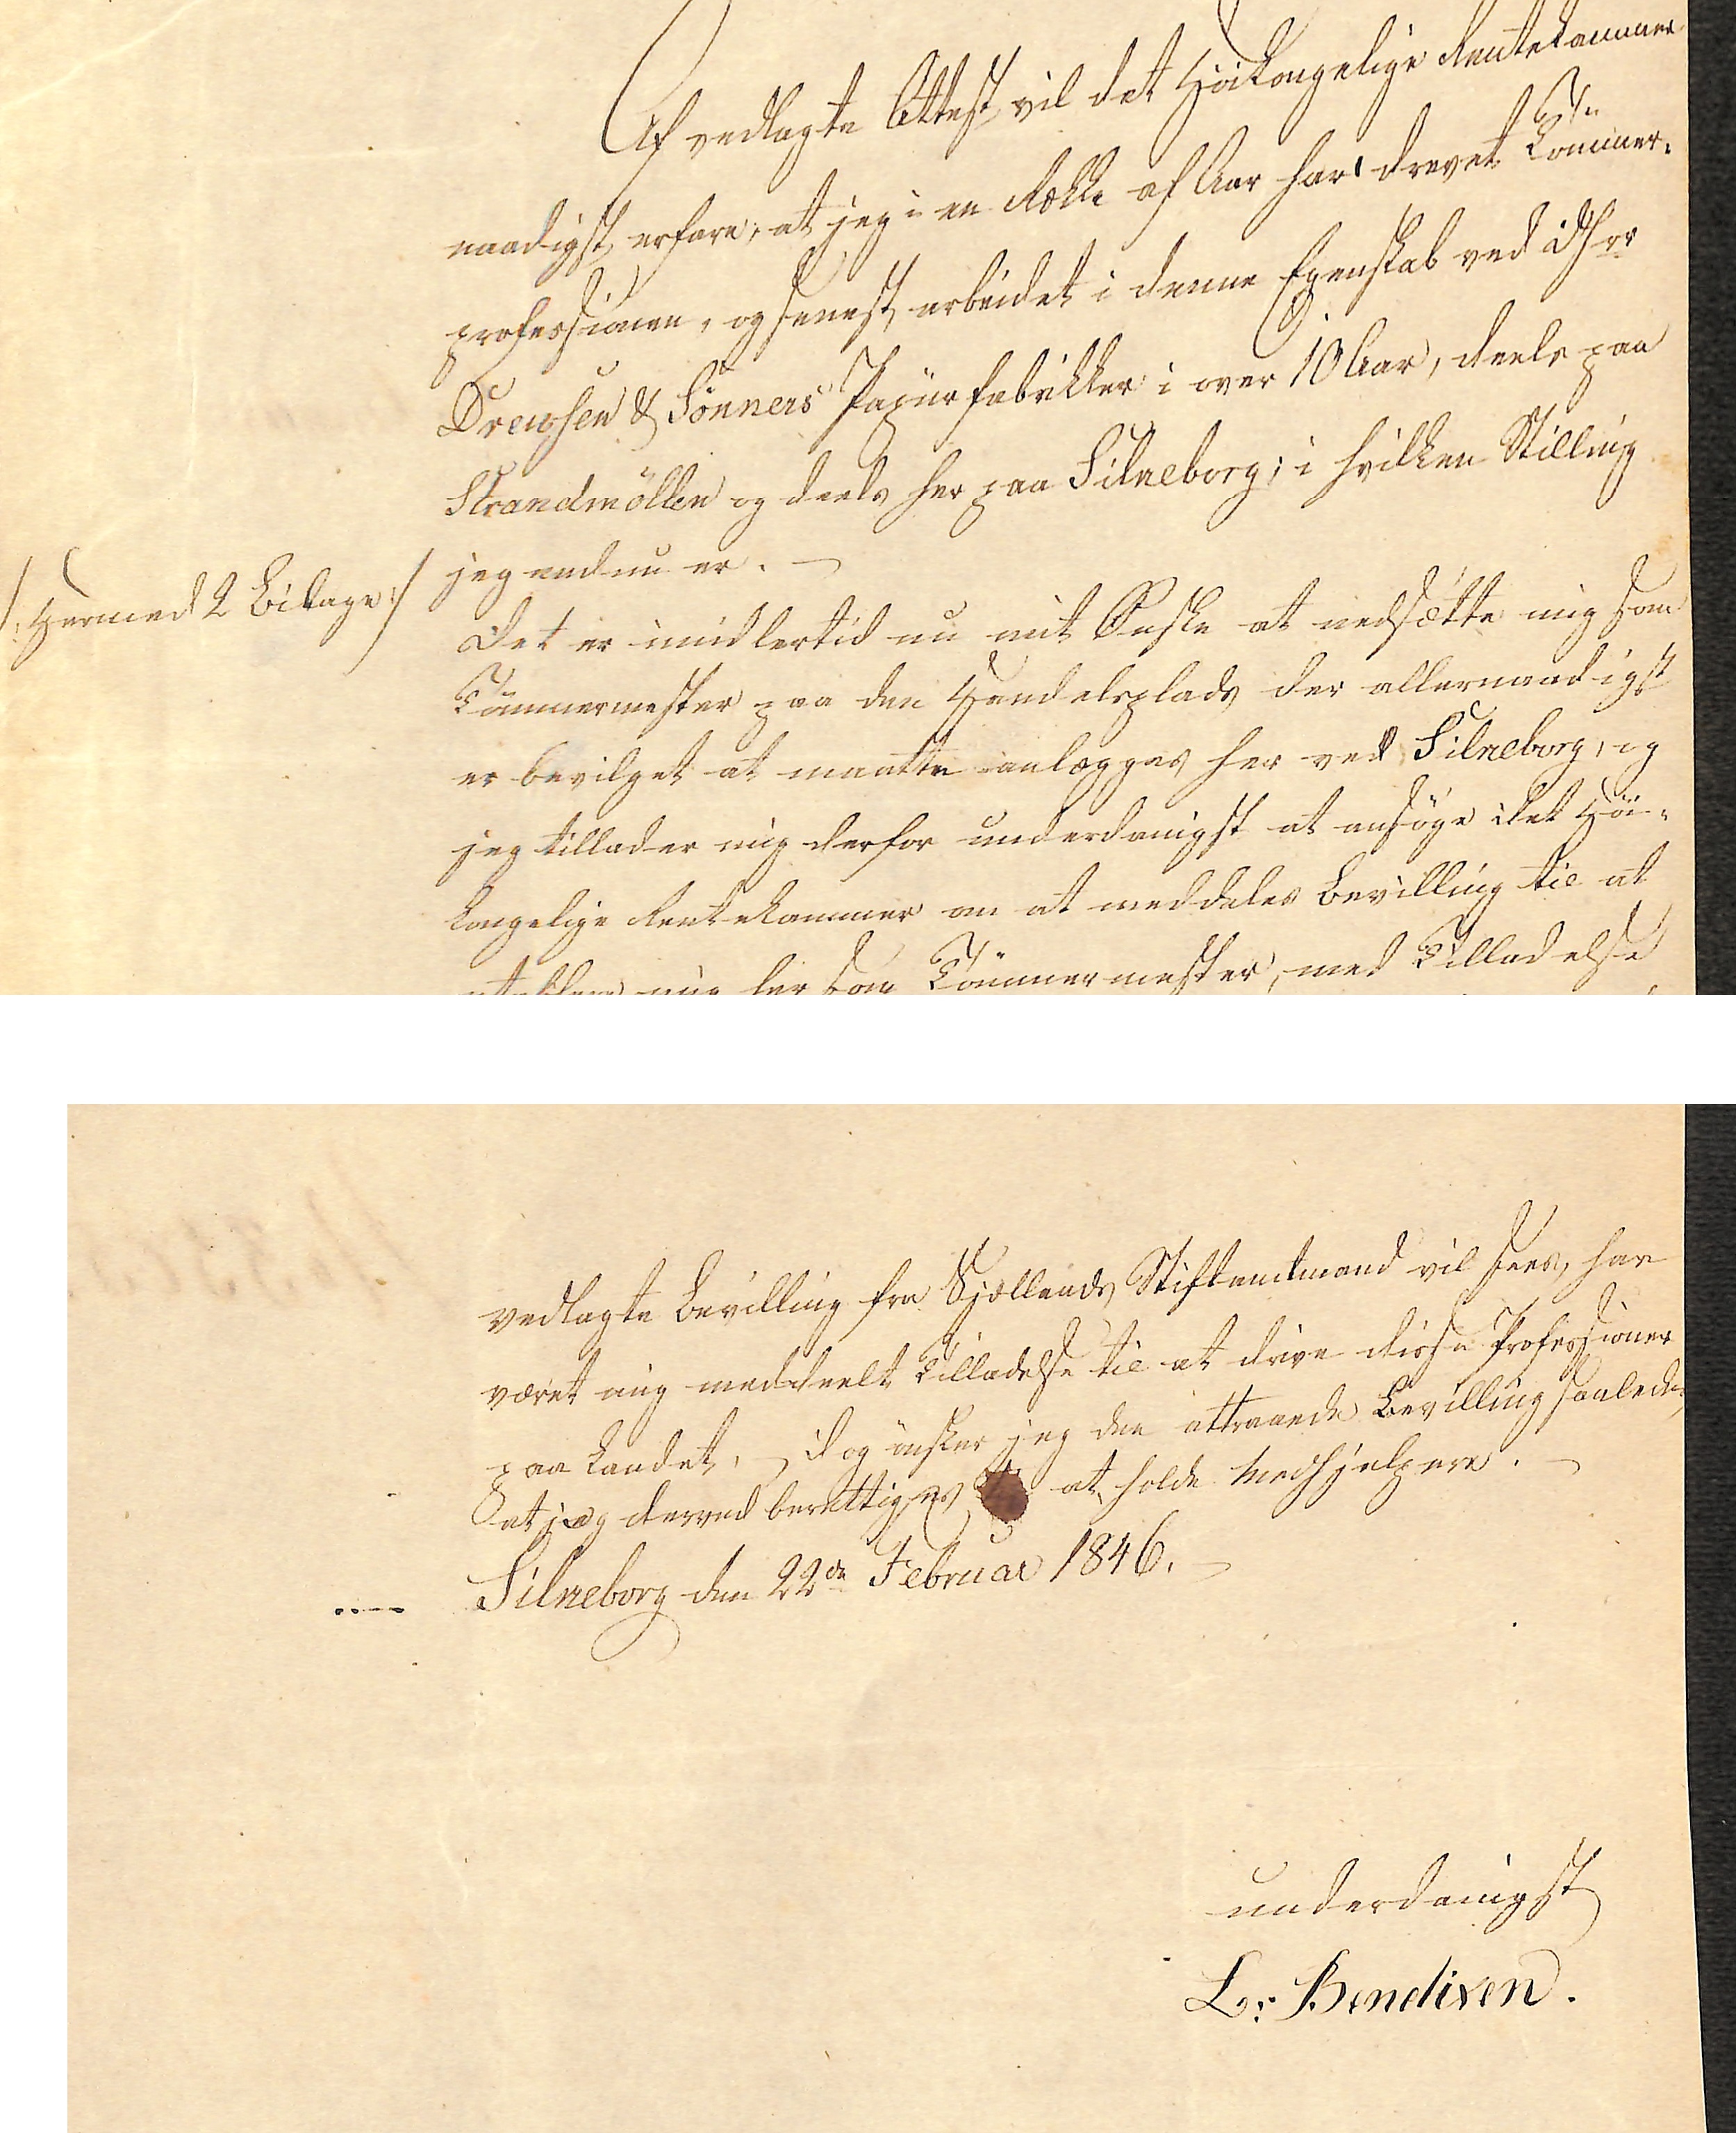 Af vedlagte Attest vil det Høikongelige Rentekammer
naadigst erfare, at jeg i en Række af Aar har drevet Tömmer-
professionen, og senest arbeidet i denne Egenskab ved DHrr
Drewsen & Sönners Papiirfabrikker i over 10 Aar, deels paa
Strandmöllen og deels her paa Silkeborg; i hvilken Stilling
jeg endnu er. –
/: Hermed 2 Bilage :/
Det er imidlertid nu mit Ønske at nedsætte mig som
Tömmermester paa den Handelsplads der allernaadigst
er bevilget at maatte anlægges her ved Silkeborg, og
jeg tillader mig derfor underdanigst at ansöge det Höi-
kongelige Rentekammer om at meddeles Bevilling til at
mig her som Tömmermester, med Tilladelse
vedlagte Bevilling fra Sjællands Stiftamtmand vil sees, har
været mig meddeelt Tilladelse til at drive disse Professioner
paa Landet. – Dog önsker jeg den attraaede Bevilling saaledes,
at jeg derved berettiges at holde Medhjelpere. –
Silkeborg den 22de Februar 1846. –
underdanigst
L: Bendixen.